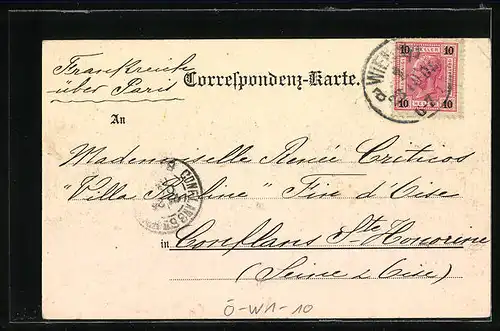 Frankreich
über Paris
Correspondenz-Karte.
10 10
WIEN
10 10
An
Mademoiselle Renée Criticos
"Villa Pauline" Fin d'Oise
in Conflans Ste Honorine
(Seine & Oise)
CONFLANS
Ö-W1-10